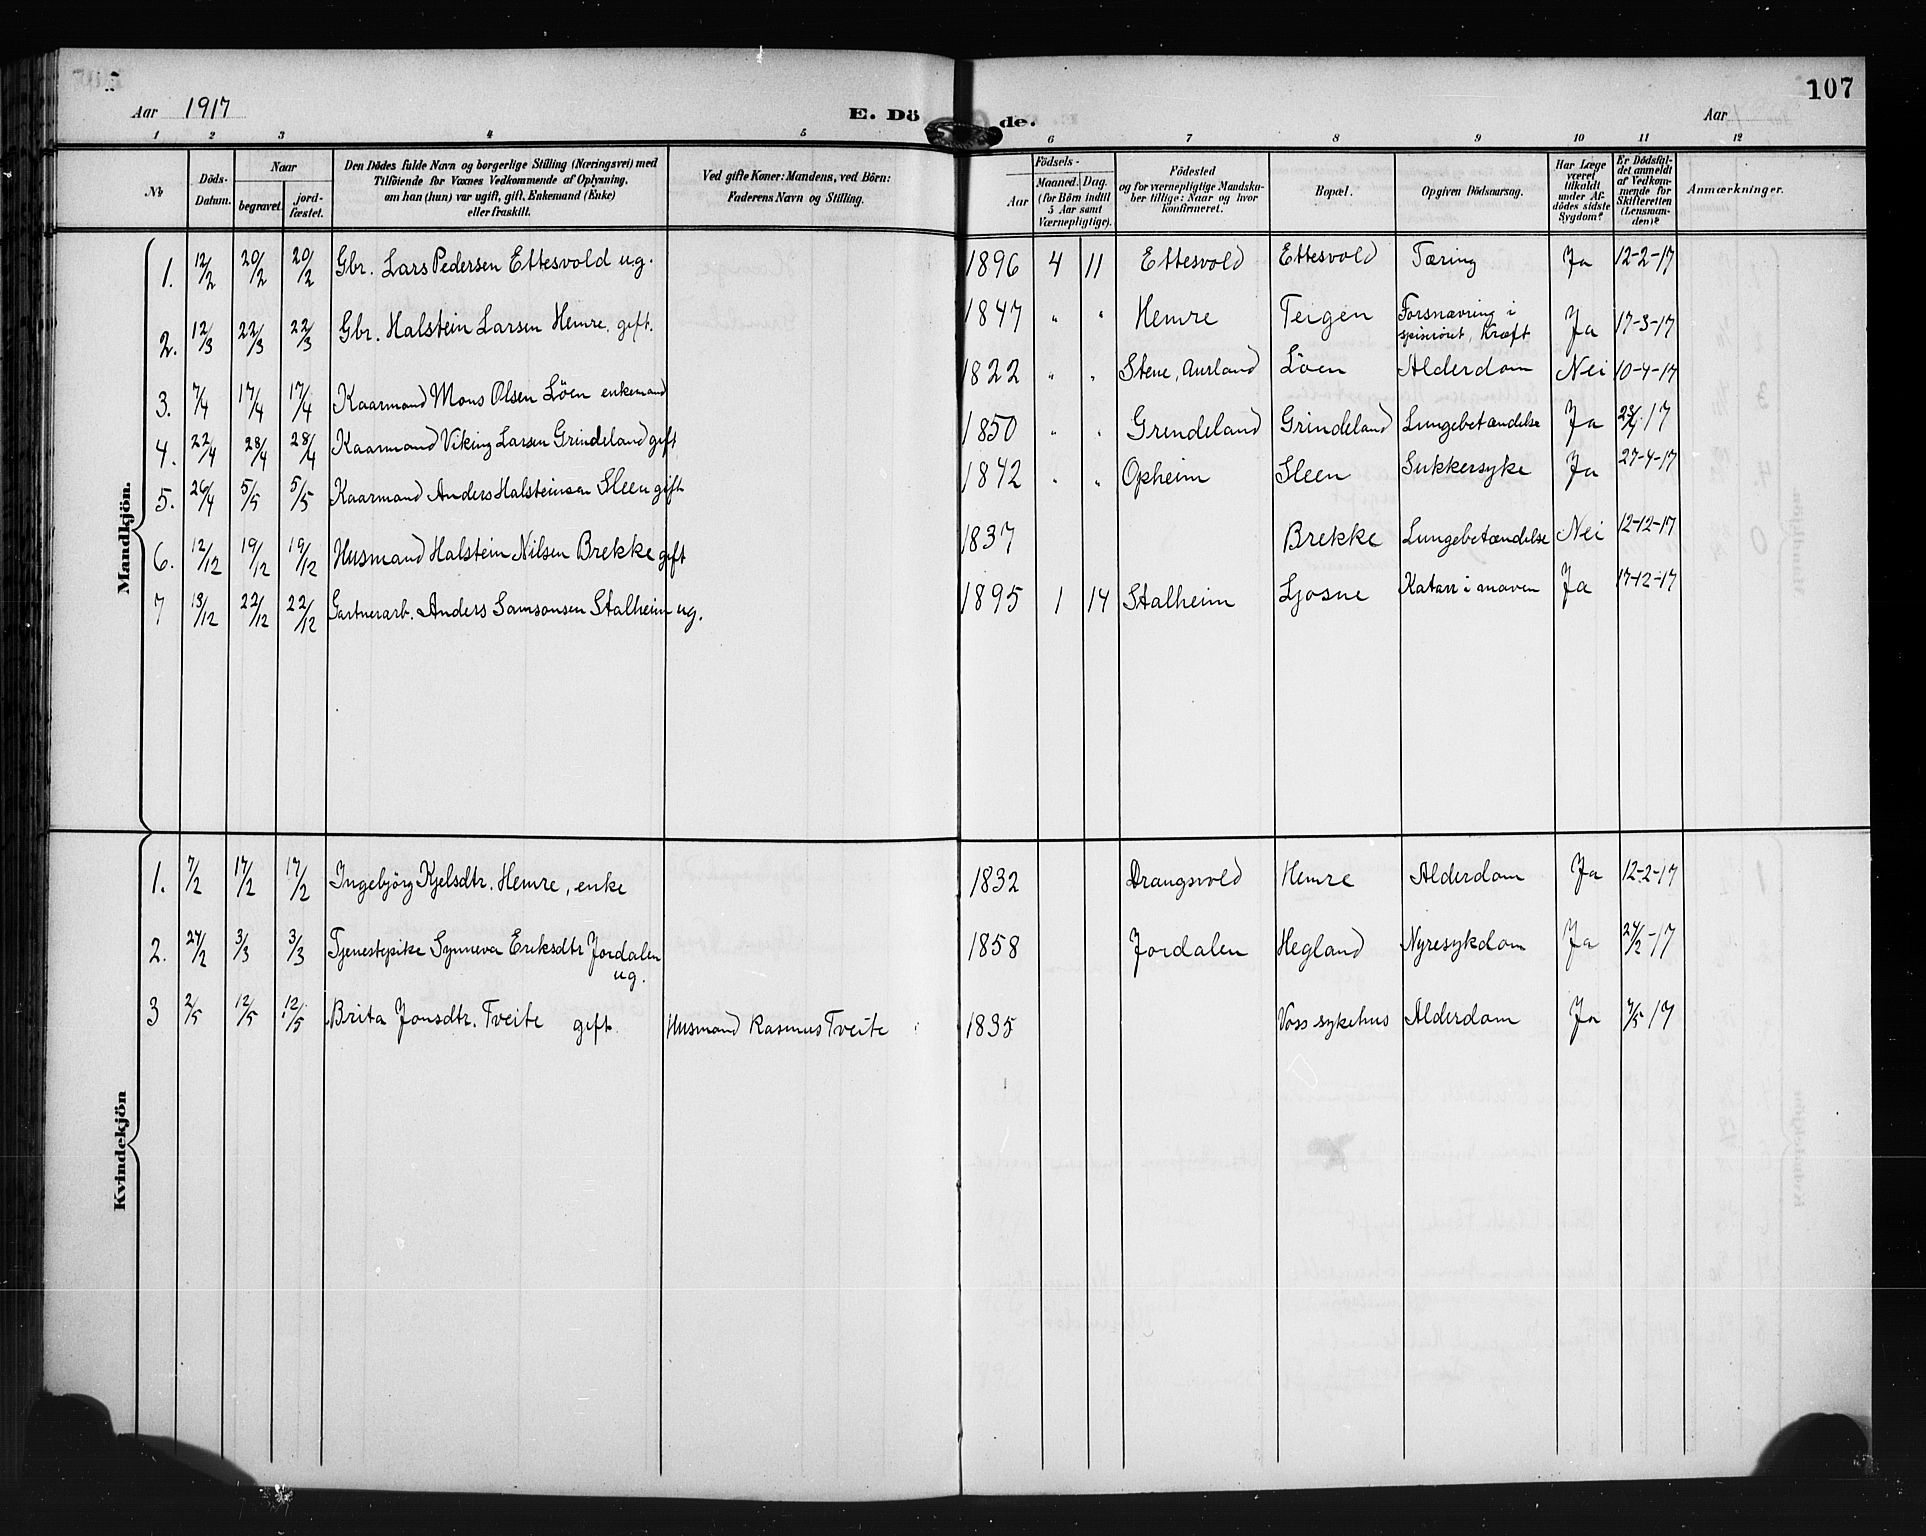 107
Aar 1917 E. Dö de. Aar
1 2 3 4 5 6 7 8 9 10 11 12
No Döds-Datum. Naar begravet. jord-fæstet. Den Dödes fulde Navn og borgerlige Stilling (Næringsvei) med Tilföiende for Voxnes Vedkommende af Oplysning, om han (hun) var ugift, gift, Enkemand (Enke) eller fraskilt. Ved gifte Koner: Mandens, ved Börn: Faderens Navn og Stilling. Födsels- Aar Maaned. Dag. (for Börn indtil 5 Aar samt Værnepligtige). Födested og for værnepligtige Mandskaber tillige: Naar og hvor konfirmeret. Bopæl. Opgiven Dödsaarsag. Har Læge været tilkaldt under Afdödes sidste Sygdom? Er Dödsfaldet anmeldt af Vedkommende for Skifteretten (Lensmanden)? Anmærkninger.
Mandkjön.
1. 12/2 20/2 20/2 Gbr. Lars Pedersen Ettesvold ug. 1896 4 11 Ettesvold Ettesvold Tæring Ja 12-2-17
2. 12/3 22/3 22/3 Gbr. Halstein Larsen Hemre, gift. 1847 " " Hemre Teigen Forsnævring i spiserøret, Kræft Ja 17-3-17
3. 7/4 17/4 17/4 Kaarmand Mons Olsen Löen enkemand 1822 " " Stene, Aurland Löen Alderdom Nei 10-4-17
4. 22/4 28/4 28/4 Kaarmand Viking Larsen Grindeland gift 1850 " " Grendeland Grindeland Lungebetændelse Ja 23/4-17
5. 26/4 5/5 5/5 Kaarmand Anders Halsteinsen Sleen gift 1842 " " Opheim Sleen Sukkersyke Ja 27-4-17
6. 12/12 19/12 19/12 Husmand Halstein Nilsen Brekke gift 1837 Brekke Lungebetændelse Nei 12-12-17
7 13/12 22/12 22/12 Gartnerarb. Anders Samsonsen Stalheim ug. 1895 1 14 Stalheim Ljosne Katarr i maven Ja 17-12-17
Kvindekjön
1. 7/2 17/2 17/2 Ingebjörg Kjelsdtr. Hemre, enke 1832 Drangsvold Hemre Alderdom Ja 12-2-17
2. 24/2 3/3 3/3 Tjenestepike Synneva Eriksdtr Jordalen ug. 1858 Jordalen Hegland Nyresykdom Ja 24/2-17
3 2/5 12/5 12/5 Brita Jonsdtr. Tveite gift. Husmand Rasmus Tveite 1835 Voss sykehus Alderdom Ja 7/5 17